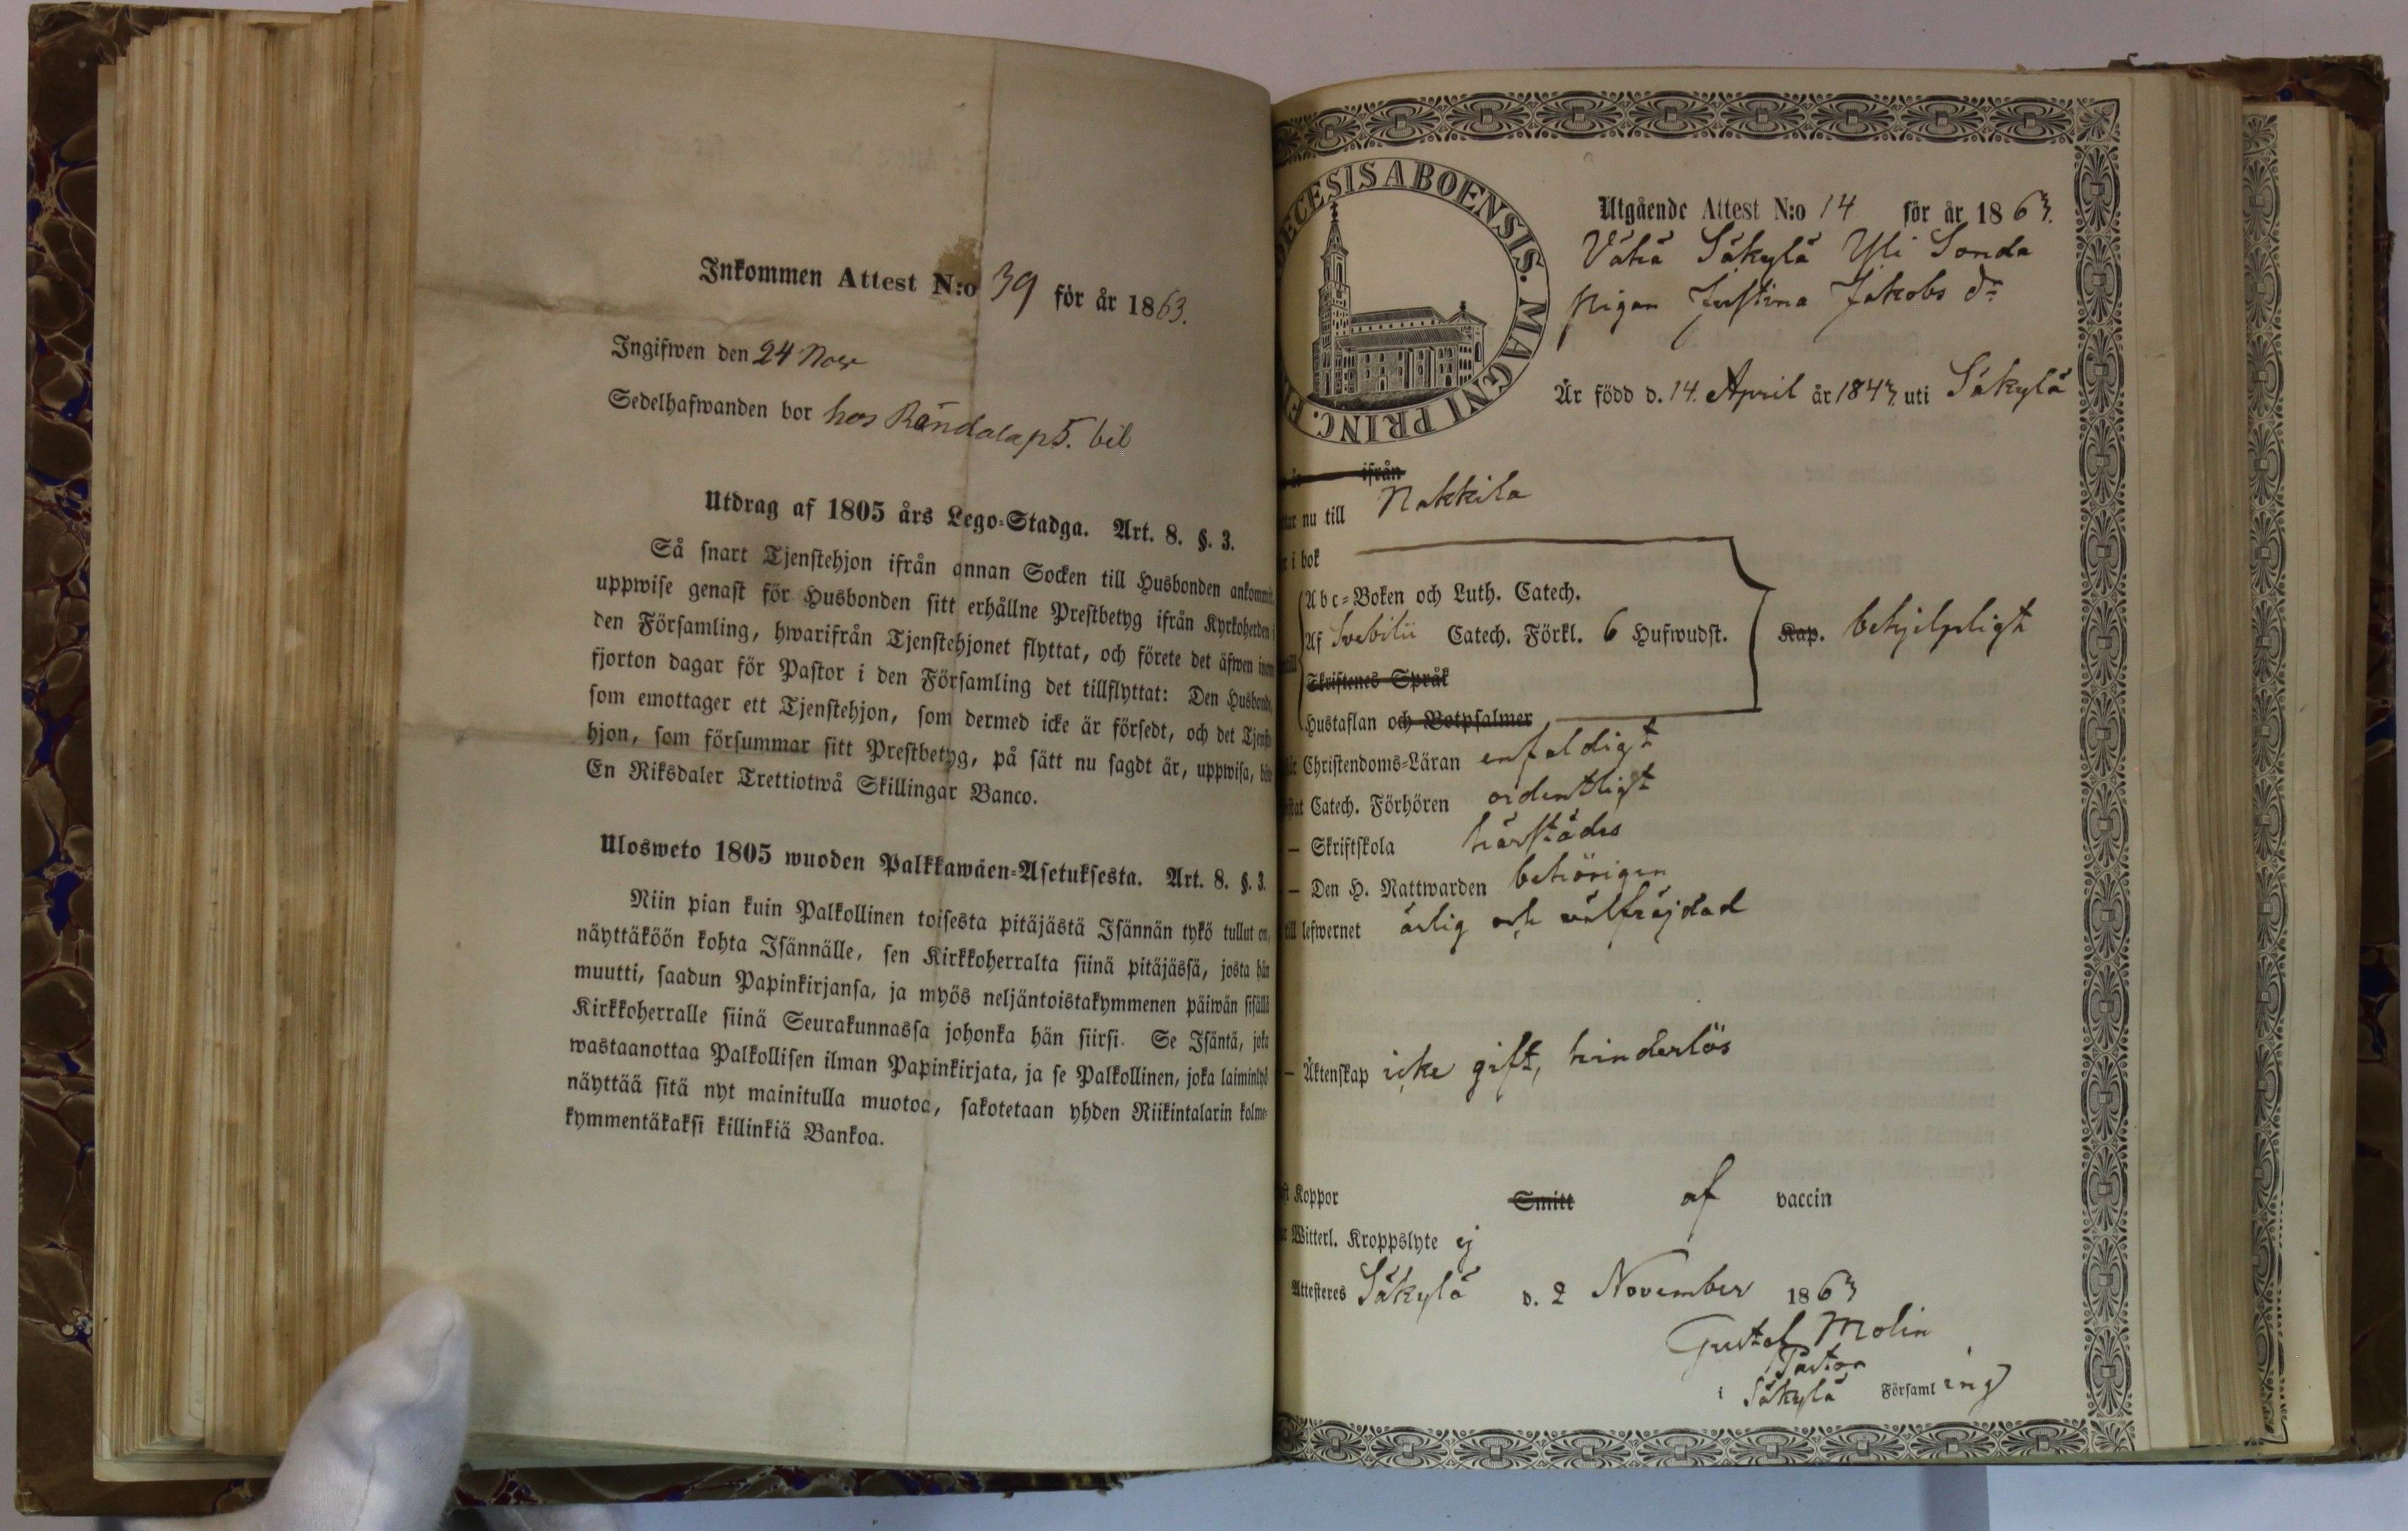 Inkommen Attest N:o 39 för år 1863.
Ingifwen den 24 Nov
Sedelhafwanden bor hos
Utdrag af 1805 års Lego-Stadga. Art. 8. §. 3.
Så snart Tjenstehjon ifrån annan Socken till Husbonden ankommit,
uppwise genast för Husbonden sitt erhållne Prestbetyg ifrån Kyrkoherden i
den Församling, hwarifrån Tjenstehjonet flyttat, och förete det äfwen inom
fjorton dagar för Pastor i den Församling det tillflyttat: Den Husbonde,
som emottager ett Tjenstehjon, som dermed icke är försedt, och det Tjenste-
hjon, som försummar sitt Prestbetyg, på sätt nu sagdt är, uppwisa, böte
En Riksdaler Trettiotwå Skillingar Banco.
Ulosweto 1805 wuoden Palkkawäen-Asetuksesta. Art. 8. §. 3.
Niin pian kuin Palkollinen toisesta pitäjästä Isännän tykö tullut on,
näyttäköön kohta Isännälle, sen Kirkkoherralta siinä pitäjässä, josta hän
muutti, saadun Papinkirjansa, ja myös neljäntoistakymmenen päiwän sisällä
Kirkkoherralle siinä Seurakunnassa johonka hän siirsi. Se Isäntä, joka
wastaanottaa Palkollisen ilman Papinkirjata, ja se Palkollinen, joka laiminlyö
näyttää sitä nyt mainitulla muotoa, sakotetaan yhden Riikintalarin kolme-
kymmentäkaksi killinkiä Bankoa.
DECESIS ABOENSIS. MAGNI PRINC. F
Utgående Attest N:o 14 för år 1863.
Vähä Säkylä Yli Sonda
Pigan Justina Jakobs dr
Är född d. 14. April år 1843 uti Säkylä
ifrån
nu till Nakkila
i bok
Abc-Boken och Luth. Catech.
Af Svebilii Catech. Förkl. 6 Hufwudst. Kap. behjelpligt
Skriftenes Språk
Hustaflan och Botpsalmer
Christendoms-Läran enfaldigt
Catech. Förhören ordentligt
— Skriftskola härstädes
— Den H. Nattwarden behörigen
till lefwernet ärlig och välfrejdad
— Äktenskap icke gift, hinderlös
Koppor Smitt af vaccin
Witterl. Kroppslyte ej
Attesteres Säkylä d. 2 November 1863
Gustaf Molin
Pastor
i Säkylä Församling